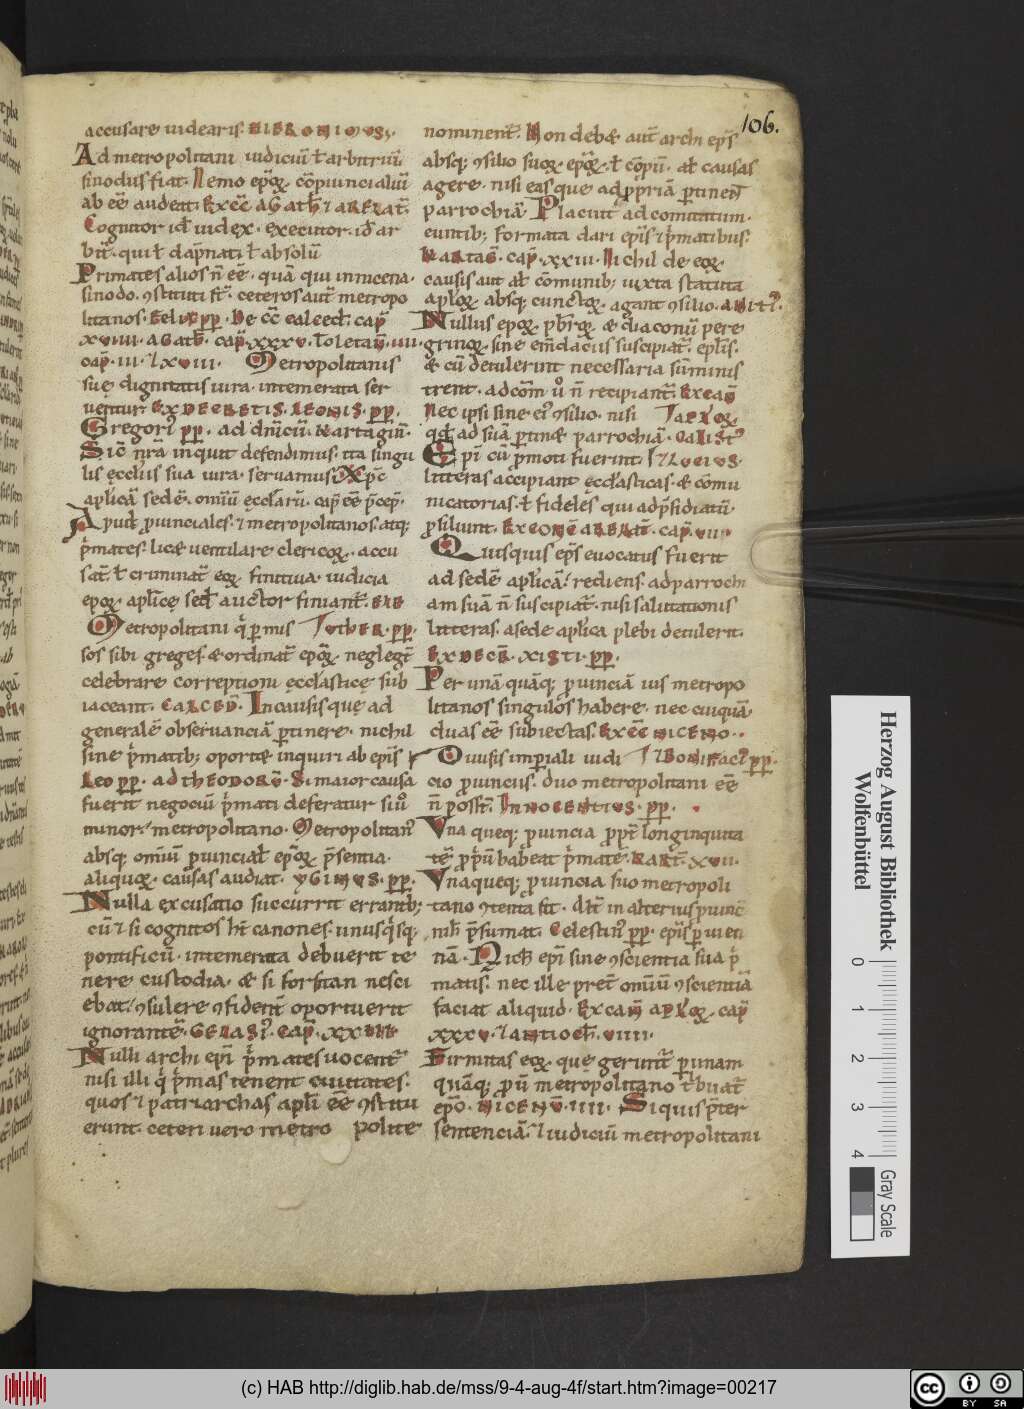 106.
accusare uidearis. HIERONIMUS;
Ad metropolitani iudiciū ł arbitriū
sinodus fiat. Nemo epōꝝ cōpiuncialiū
ab eē audeat. EXCC̄ AGATH̄ ⁊ ARELAT̄.
Cognitor id̄ iudex. executor. id̄ ar
bit̄. qui ł dāpnati ł absolū
Primates alios n̄ eē. quā qui in nicena.
sinodo. ɔstituti st̄. ceteros aut̄ metropo
litanos. FELIX PP. DE CC̄ calced̄. cap̄
XVIIII. AGATH̄. cap̄ XXXV. TOLETAN̄. IIII.
cap̄. III. ⁊ LXVIII. Metropolitanis
suę dignitatis iura. intemerata ser
uentur EX DECRETIS. LEONIS. PP.
Gregori PP. AD DN̄ICŪ. KARTAGIN̄.
Sic̄ nr̄a inquit defendimus. ita singu
lis ecclіis sua iura. seruamus. Xp̄c
apl̄icā sedē. omiū ęcclarū. cap̄ eē p̄cep̄.
Apud puinciales. ⁊ metropolitanos atq;
p̄mates. licæ uentilare clericoꝝ. accu
sat̄. ł criminat̄ eoꝝ finitiua. iudicia
epoꝝ. apl̄icę sed̄ auctor finiant̄. EIB
Metropolitani q̄ pmis IULIUS. PP.
sos sibi greges. æ ordinat̄ epōꝝ neglegt̄
celebrare correptioni ęcclasticę sub
iaceant. CALCED̄. In causis quę ad
generalē obseruanciā ptinere. nichil
sine p̄matib; oportæ inquiri ab ep̄is
LEO PP. AD THEODORŪ. Si maior causa
fuerit negociū p̄mati deferatur siu̇
minor metropolitano. Metropolitan̄
absq; omiū puincial̄ epōꝝ p̄sentia.
aliquoꝝ. causas audiat. YGINUS. PP.
Nulla excusatio succurrit errantib;
cū ⁊ si cognitos hr̄t canones. unusq̄sq;
pontificū. intemerata debuerit te
nere custodia. æ si forsitan nesci
ebat. ɔsulere ɔfident̄ oportuerit
ignorantē. GELASI. CAP̄. XXIII
Nulli archi ep̄i p̄mates uocent̄
nisi illi q̄ p̄mas tenent ciuitates.
quos ⁊ patriarchas apl̄i eē ɔstitu
erunt. ceteri uero metro polite
nominent̄. Non debæ aut̄ archi ep̄s
absq; ɔsilio suoꝝ. epōꝝ. ł cōpū. al̄ causas
agere. nisi eas que ad ppriā ptinent̄
parrochiā. Placuit ad comitatum.
euntib; formata dari ep̄is ⁊ p̄matibus.
KARTAḠ. cap̄. XXIII. Nichil de eoꝝ
causis aut al̄ cōmunib; iuxta statuta
ap̄loꝝ absq; cunctoꝝ. agant ɔsilio. ANIT.
Nullus epoꝝ. pbr̄oꝝ. æ diaconū pere
grinoꝝ. sine cm̄daciis suscipiat̄. ep̄lis.
& cū detulerint necessaria sum̄inis
trent. ad cōm u̇ n̄ recipiant̄. EX CAN̄
Nec ipsi sine ei ɔsilio. nisi APLOꝝ
qd̄ ad suā ptinæ parrochiā. CALIST̄
Ep̄i cū pmoti fuerint. ⁊ LUCIUS.
litteras accipiant ęcclasticas. & cōmu
nicatorias. ł fideles qui ad p̄sidiatū.
psiliunt. EX CONC̄ ARELAT̄. CAP̄. VII.
Quisquis ep̄s euocatus fuerit
ad sedē apl̄icā. rediens. ad parrochi
am suā n̄ suscipiat̄. nisi salutationis
litteras. a sede apl̄ica plebi detulerit.
EX DECR̄. XISTI. PP.
Per unā quāq; puinciā ius metropo
litanos singulos habere. nec cuiquā
duas eē subiectas. EX CC̄ NICENO.
Diuisis imperiali iudi ⁊ BONIFACI PP.
cio puinciis. duo metropolitani eē
n̄ posst̄. INNOCENTIUS. PP.
Una queq; puincia ppt̄ longinquita
tē ppū habeat p̄matē. KART̄. XVII.
Unaqueq; puincia suo metropoli
tano ɔtenta sit. Alt̄ in alterius puinc̄
nih p̄sumat. Celestin̄ PP. ep̄is p uien
nā. Nich̄ ep̄i sine ɔscientia sua p̄
matis. nec ille pret̄ omiū ɔscientiā
faciat aliquid. EX CAN̄ APLOꝝ. cap̄
XXXV. ⁊ ANTIOCH̄. VIIII.
Firmitas eoꝝ. quę gerunt̄ p unam
quāq; pū metropolitano t̄buat̄
ep̄o. NICENŪ. IIII. Si quis p̄ter
sentenciā. ⁊ iudiciū metropolitani
Herzog August Bibliothek
Wolfenbüttel
0 1 2 3 4
Gray Scale
(c) HAB http://diglib.hab.de/mss/9-4-aug-4f/start.htm?image=00217
cc BY SA